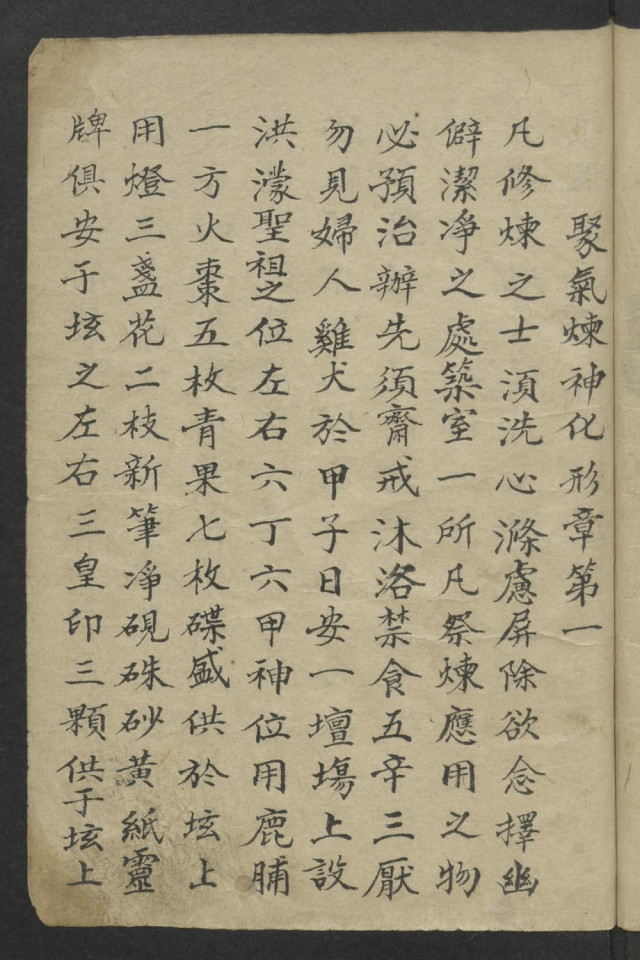 聚氣煉神化形章第一
凡修煉之士湏洗心滌慮屏除欲念擇幽
僻潔凈之處築室一所凡祭煉應用之物
必預治辦先須齋戒沐洛禁食五辛三厭
勿見婦人雞犬於甲子日安一壇塲上設
洪濛聖祖之位左右六丁六甲神位用鹿脯
一方火棗五枚青果七枚碟盛供於垓上
用燈三盞花二枝新筆凈硯硃砂黃紙靈
牌俱安于垓之左右三皇印三顆供于垓上